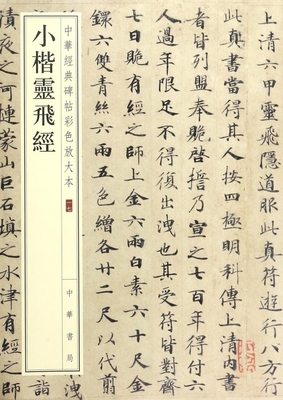 上清六甲靈飛隱道服此真符遊行八方行
此真書當得其人按四極明科傳上清內書
者皆列盟奉貺啓誓乃宣之七百年得付六
人過年限足不得復出洩也其受符皆對齋
七日賫有經之師上金六兩白素六十尺金
鐶六雙青絲六兩五色繒各廿二尺以代翦
中華經典碑帖彩色放大本
小楷靈飛經
中華書局
積夜之河運蒙山巨石填之水津有經之師